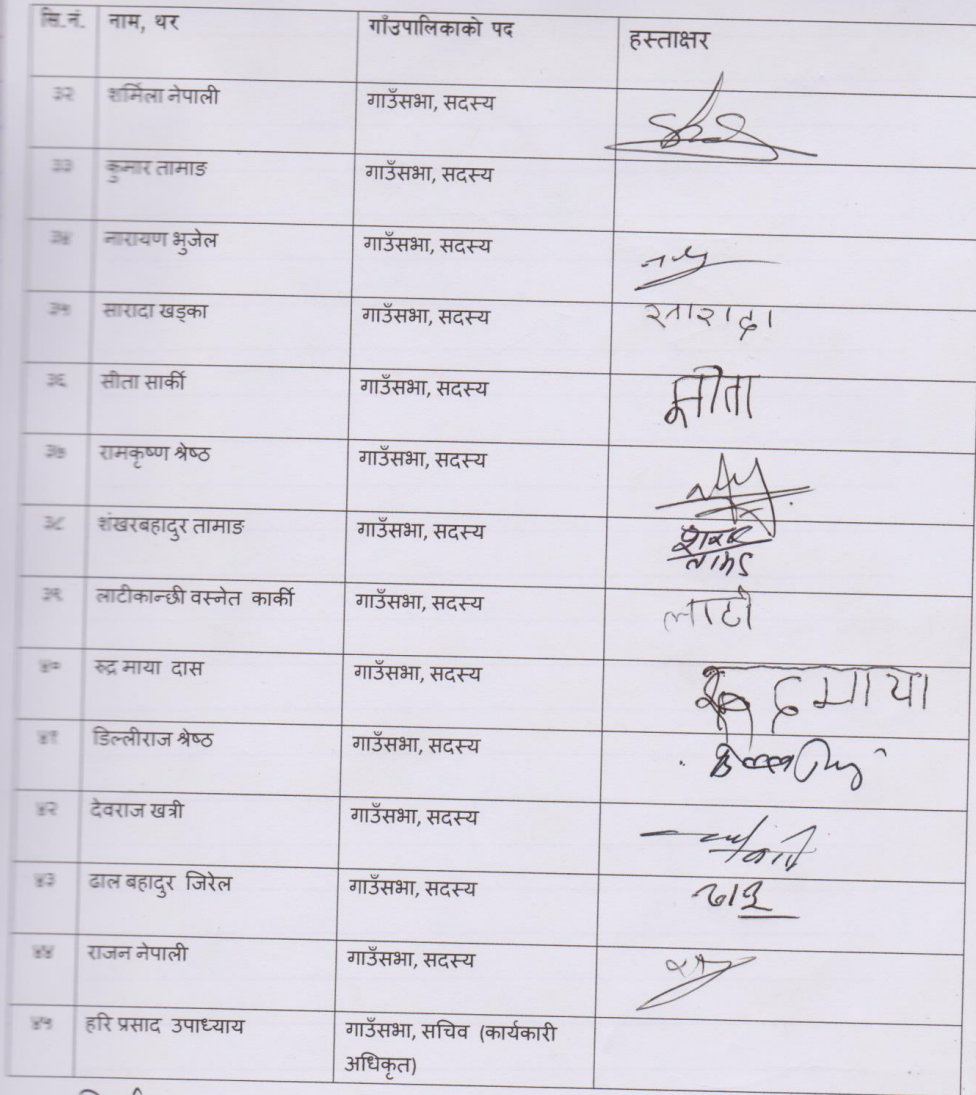 सि.नं. नाम, थर गाँउपालिकाको पद हस्ताक्षर
३२ शर्मिला नेपाली गाउँसभा, सदस्य
३३ कुमार तामाङ गाउँसभा, सदस्य
३४ नारायण भुजेल गाउँसभा, सदस्य
३५ सारादा खड्का गाउँसभा, सदस्य सारादा
३६ सीता सार्की गाउँसभा, सदस्य सीता
३७ रामकृष्ण श्रेष्ठ गाउँसभा, सदस्य
३८ शंखरबहादुर तामाङ गाउँसभा, सदस्य
३९ लाटीकान्छी वस्नेत कार्की गाउँसभा, सदस्य लाटी
४० रुद्र माया दास गाउँसभा, सदस्य
४१ डिल्लीराज श्रेष्ठ गाउँसभा, सदस्य
४२ देवराज खत्री गाउँसभा, सदस्य
४३ ढाल बहादुर जिरेल गाउँसभा, सदस्य
४४ राजन नेपाली गाउँसभा, सदस्य
४५ हरि प्रसाद उपाध्याय गाउँसभा, सचिव (कार्यकारी
अधिकृत)